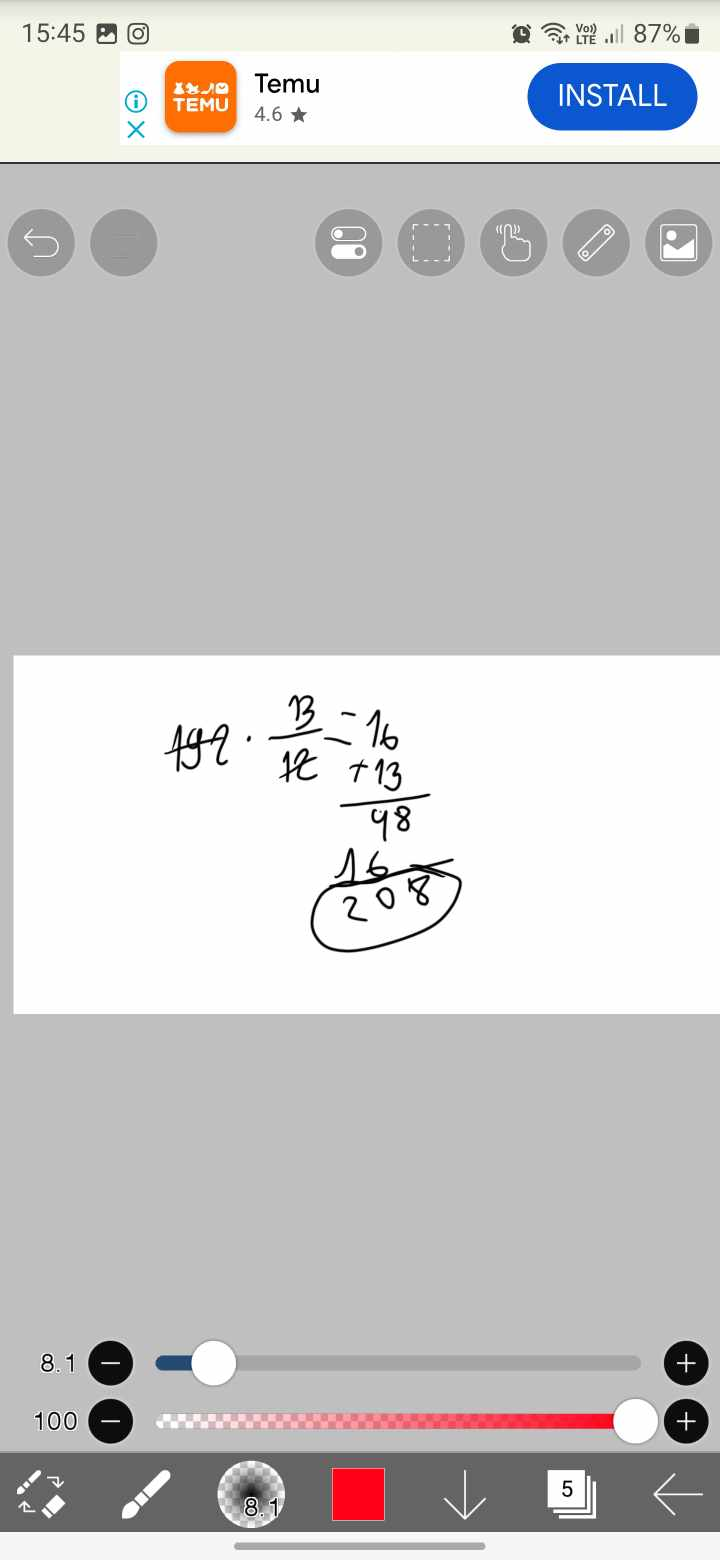 15:45 Vo)) LTE 87%
TEMU
Temu
4.6 ★
INSTALL
192 · 13/12 = 16
+13
48
16
208
8.1
100
8.1
5